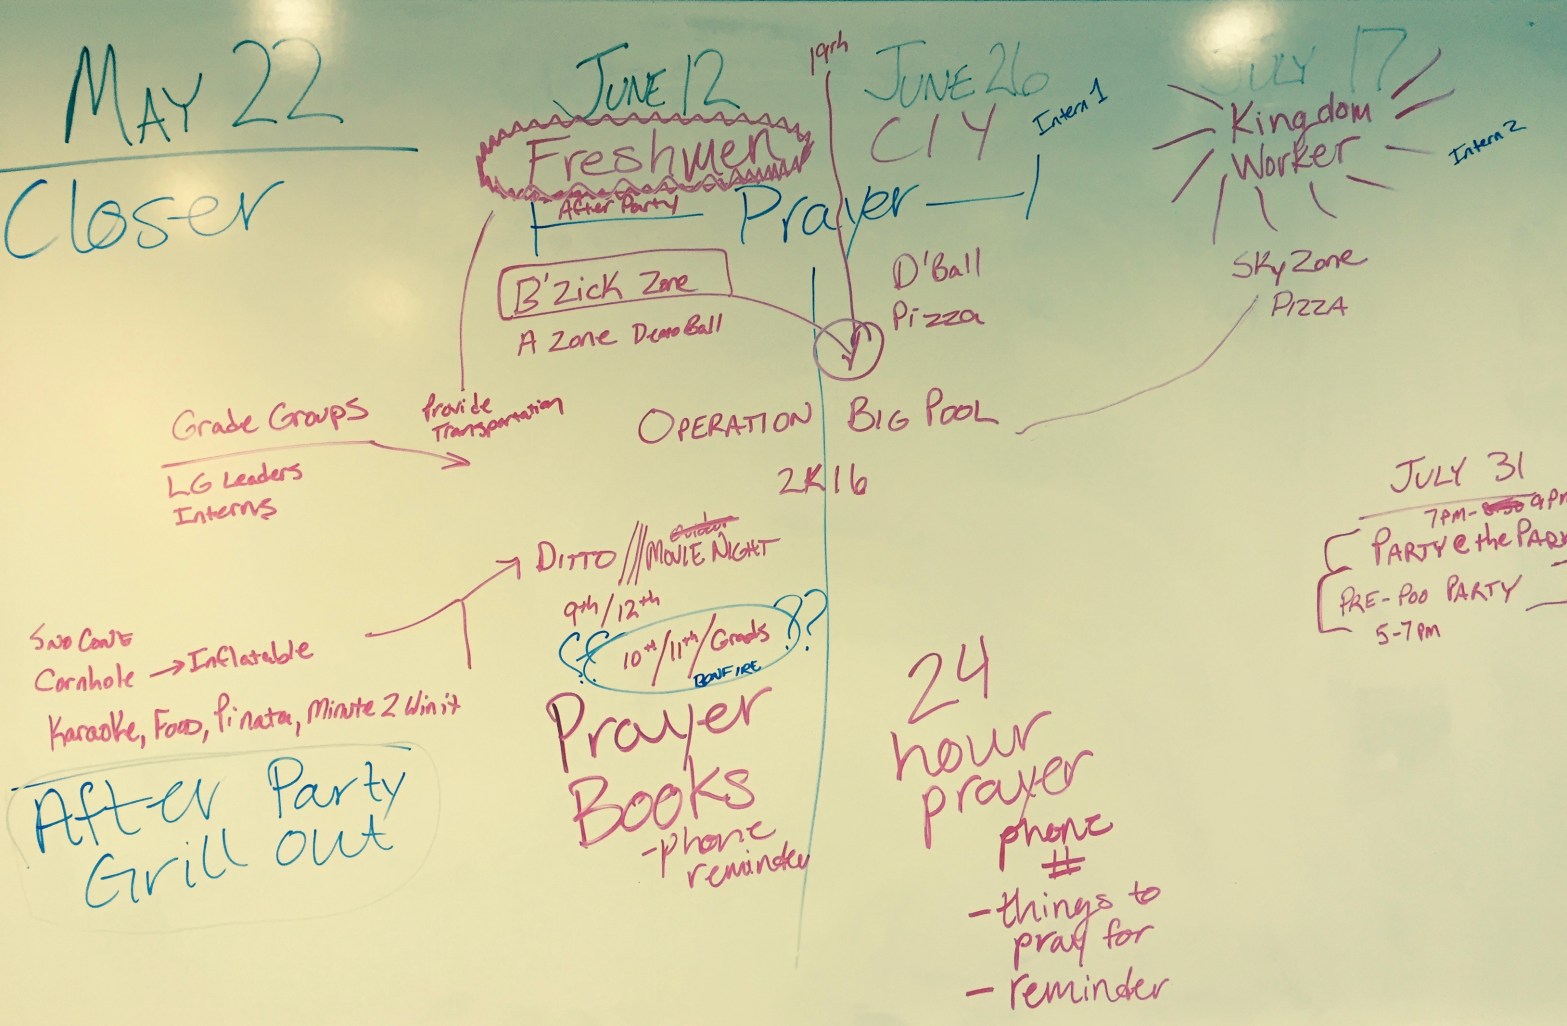 MAY 22
Closer
JUNE 12
Freshmen
After Party
19th
JUNE 26
CIY
Intern 1
Prayer
JULY 17
Kingdom
Worker
Intern 2
B'Zick Zone
A Zone DemoBall
D'Ball
Pizza
SkyZone
PIZZA
Grade Groups
LG Leaders
Interns
Provide
Transportation
OPERATION BIG POOL
2K16
JULY 31
7PM- 9PM
PARTY @ the PARK
PRE-POO PARTY
5-7pm
DITTO /// MOVIE NIGHT
9th/12th
10th/11th/Grads ??
BONFIRE
Sno Cone
Cornhole → Inflatable
Karaoke, Food, Pinata, Minute 2 Win it
After Party
Grill out
Prayer
Books
-phone
reminder
24
hour
prayer
phone
#
- things to
pray for
- reminder